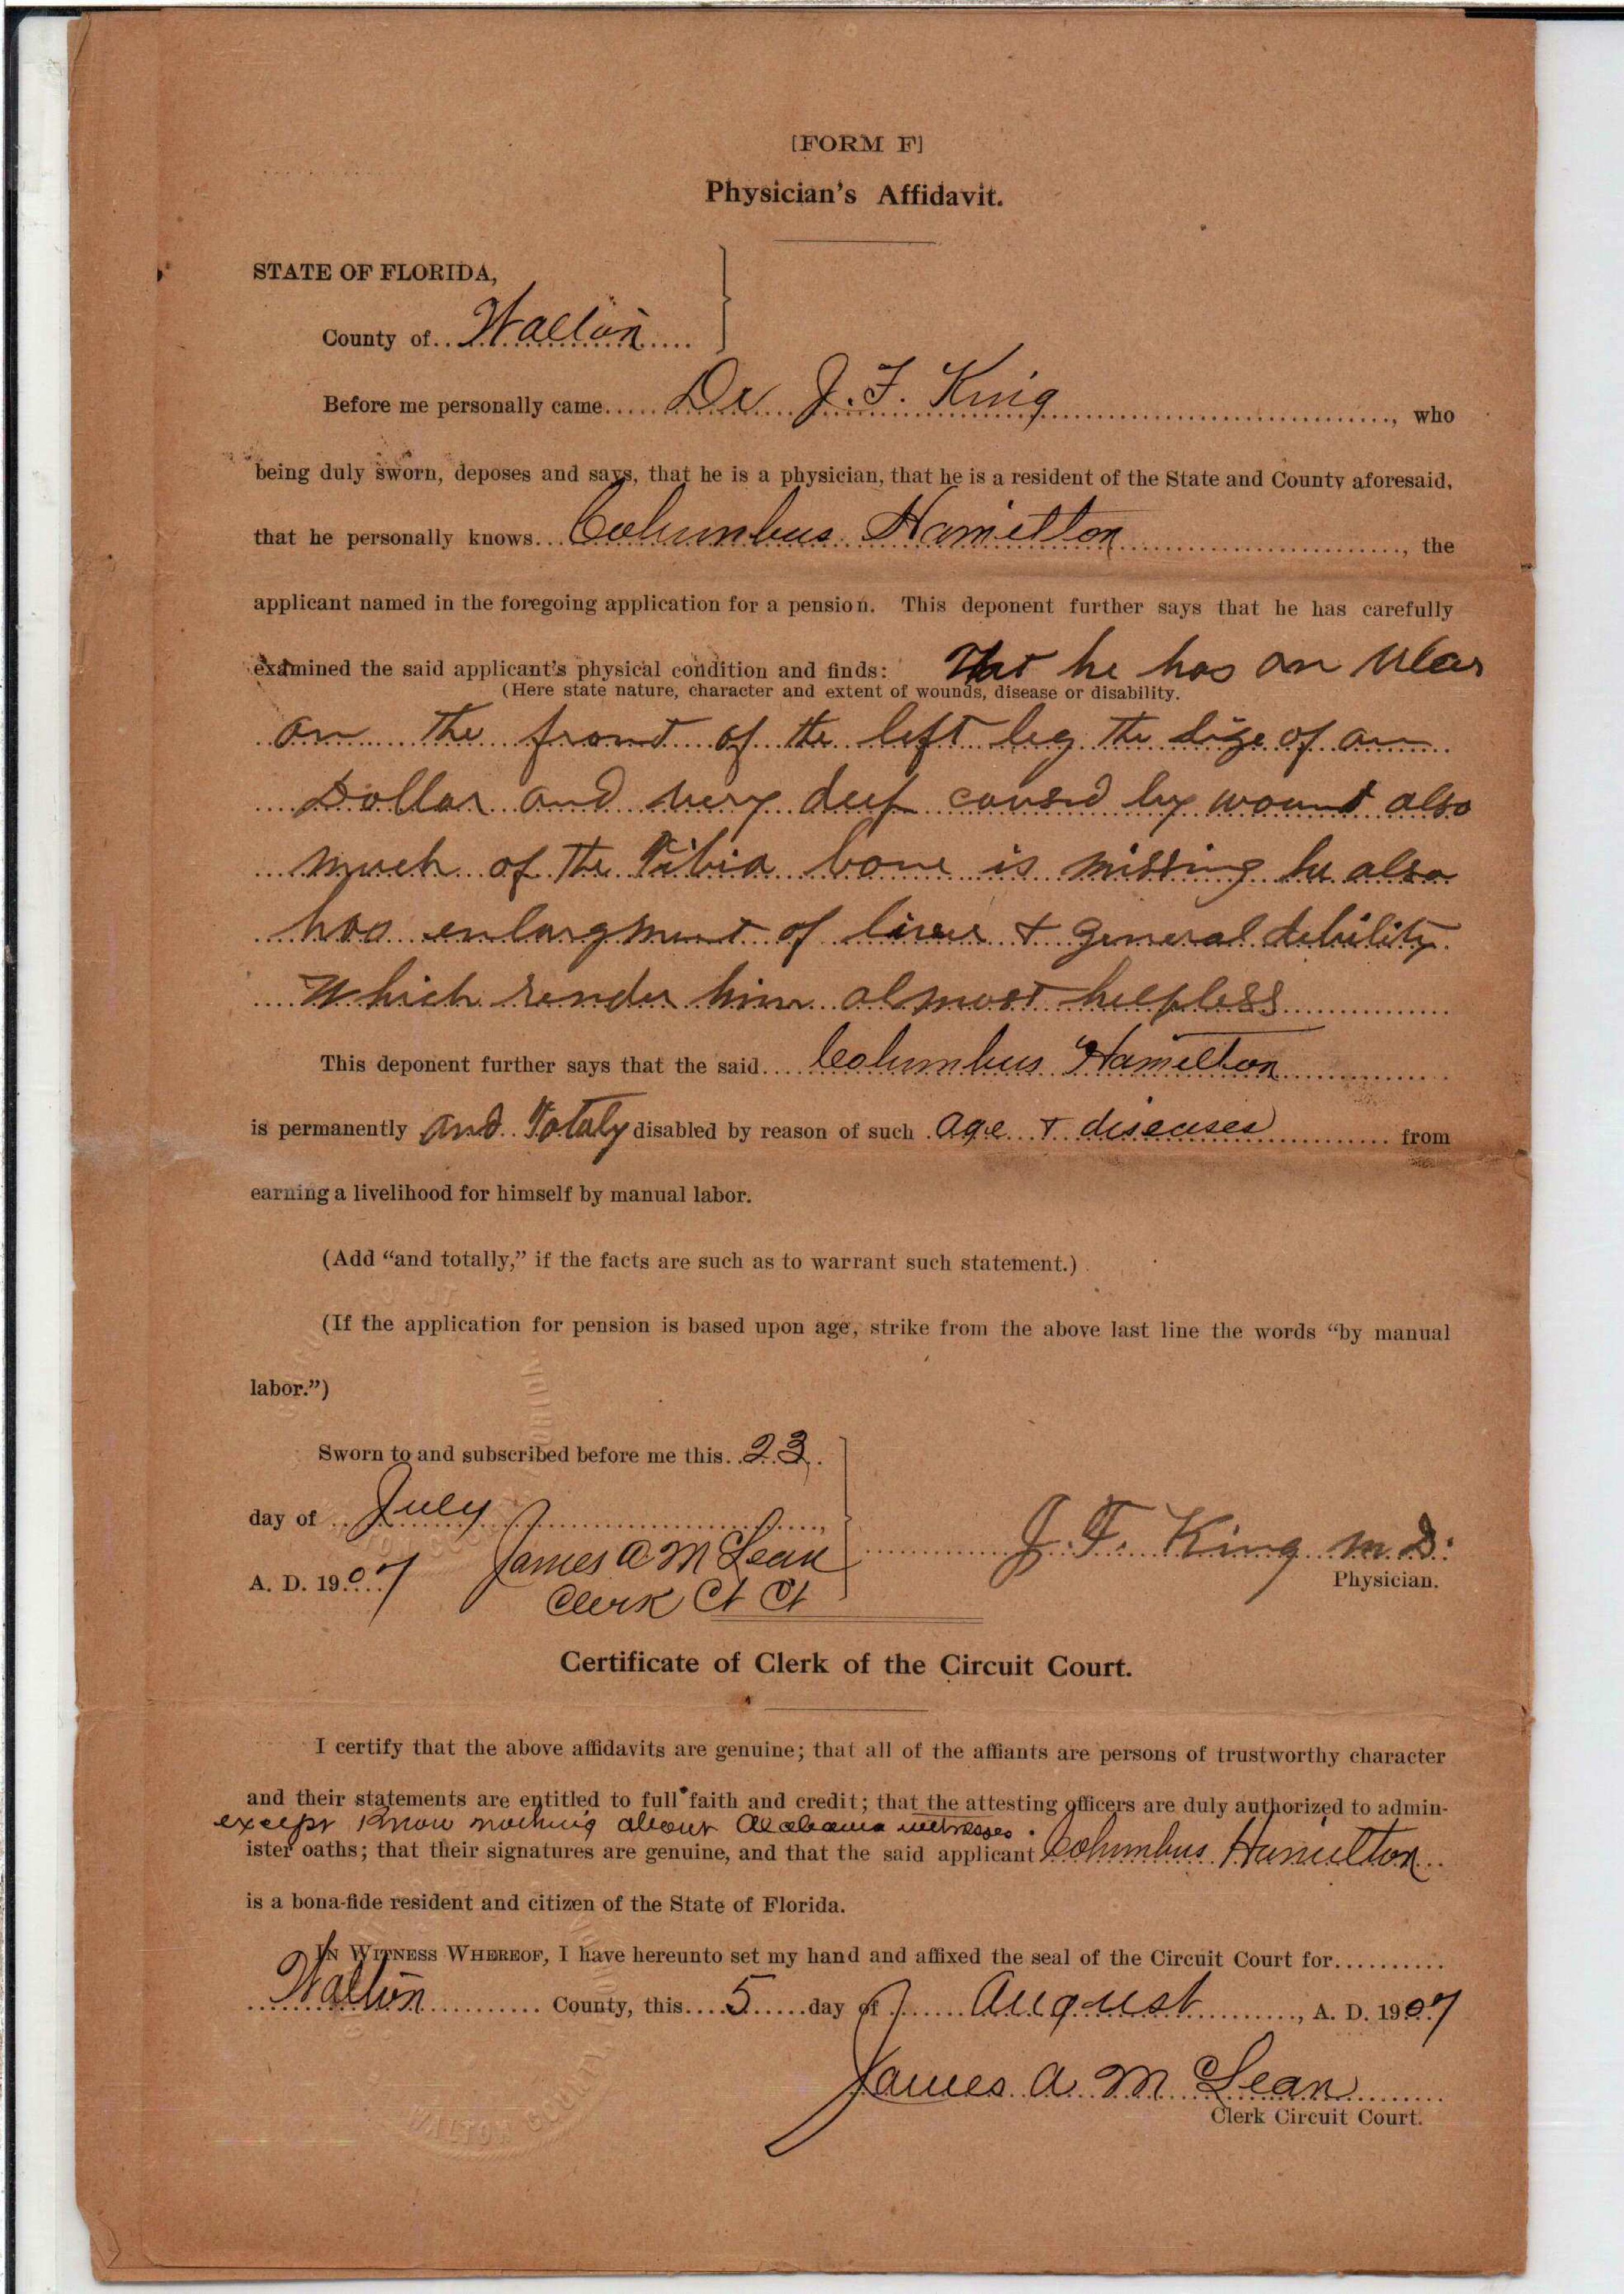 [FORM F]
Physician's Affidavit.
STATE OF FLORIDA,
County of Walton
Before me personally came Dr J. F. King, who
being duly sworn, deposes and says, that he is a physician, that he is a resident of the State and County aforesaid,
that he personally knows Columbus Hamilton, the
applicant named in the foregoing application for a pension. This deponent further says that he has carefully
examined the said applicant's physical condition and finds: That he has an Ulcer
(Here state nature, character and extent of wounds, disease or disability.
on the front of the left leg the size of an
Dollar and very deep caused by wound also
much of the Tibia bone is missing he also
has enlargment of liver & general debility
Which render him almost helpless
This deponent further says that the said Columbus Hamilton
is permanently and Totaly disabled by reason of such age & diseases from
earning a livelihood for himself by manual labor.
(Add "and totally," if the facts are such as to warrant such statement.)
(If the application for pension is based upon age, strike from the above last line the words "by manual
labor.")
Sworn to and subscribed before me this 23
day of July
A. D. 1907 James A McLean
Clerk Ct Ct
J. F. King M D.
Physician.
Certificate of Clerk of the Circuit Court.
I certify that the above affidavits are genuine; that all of the affiants are persons of trustworthy character
and their statements are entitled to full faith and credit; that the attesting officers are duly authorized to admin-
except know nothing about Alabama witnesses.
ister oaths; that their signatures are genuine, and that the said applicant Columbus Hamilton
is a bona-fide resident and citizen of the State of Florida.
IN WITNESS WHEREOF, I have hereunto set my hand and affixed the seal of the Circuit Court for
Walton County, this 5 day of August, A. D. 1907
James A McLean
Clerk Circuit Court.
WALTON COUNTY